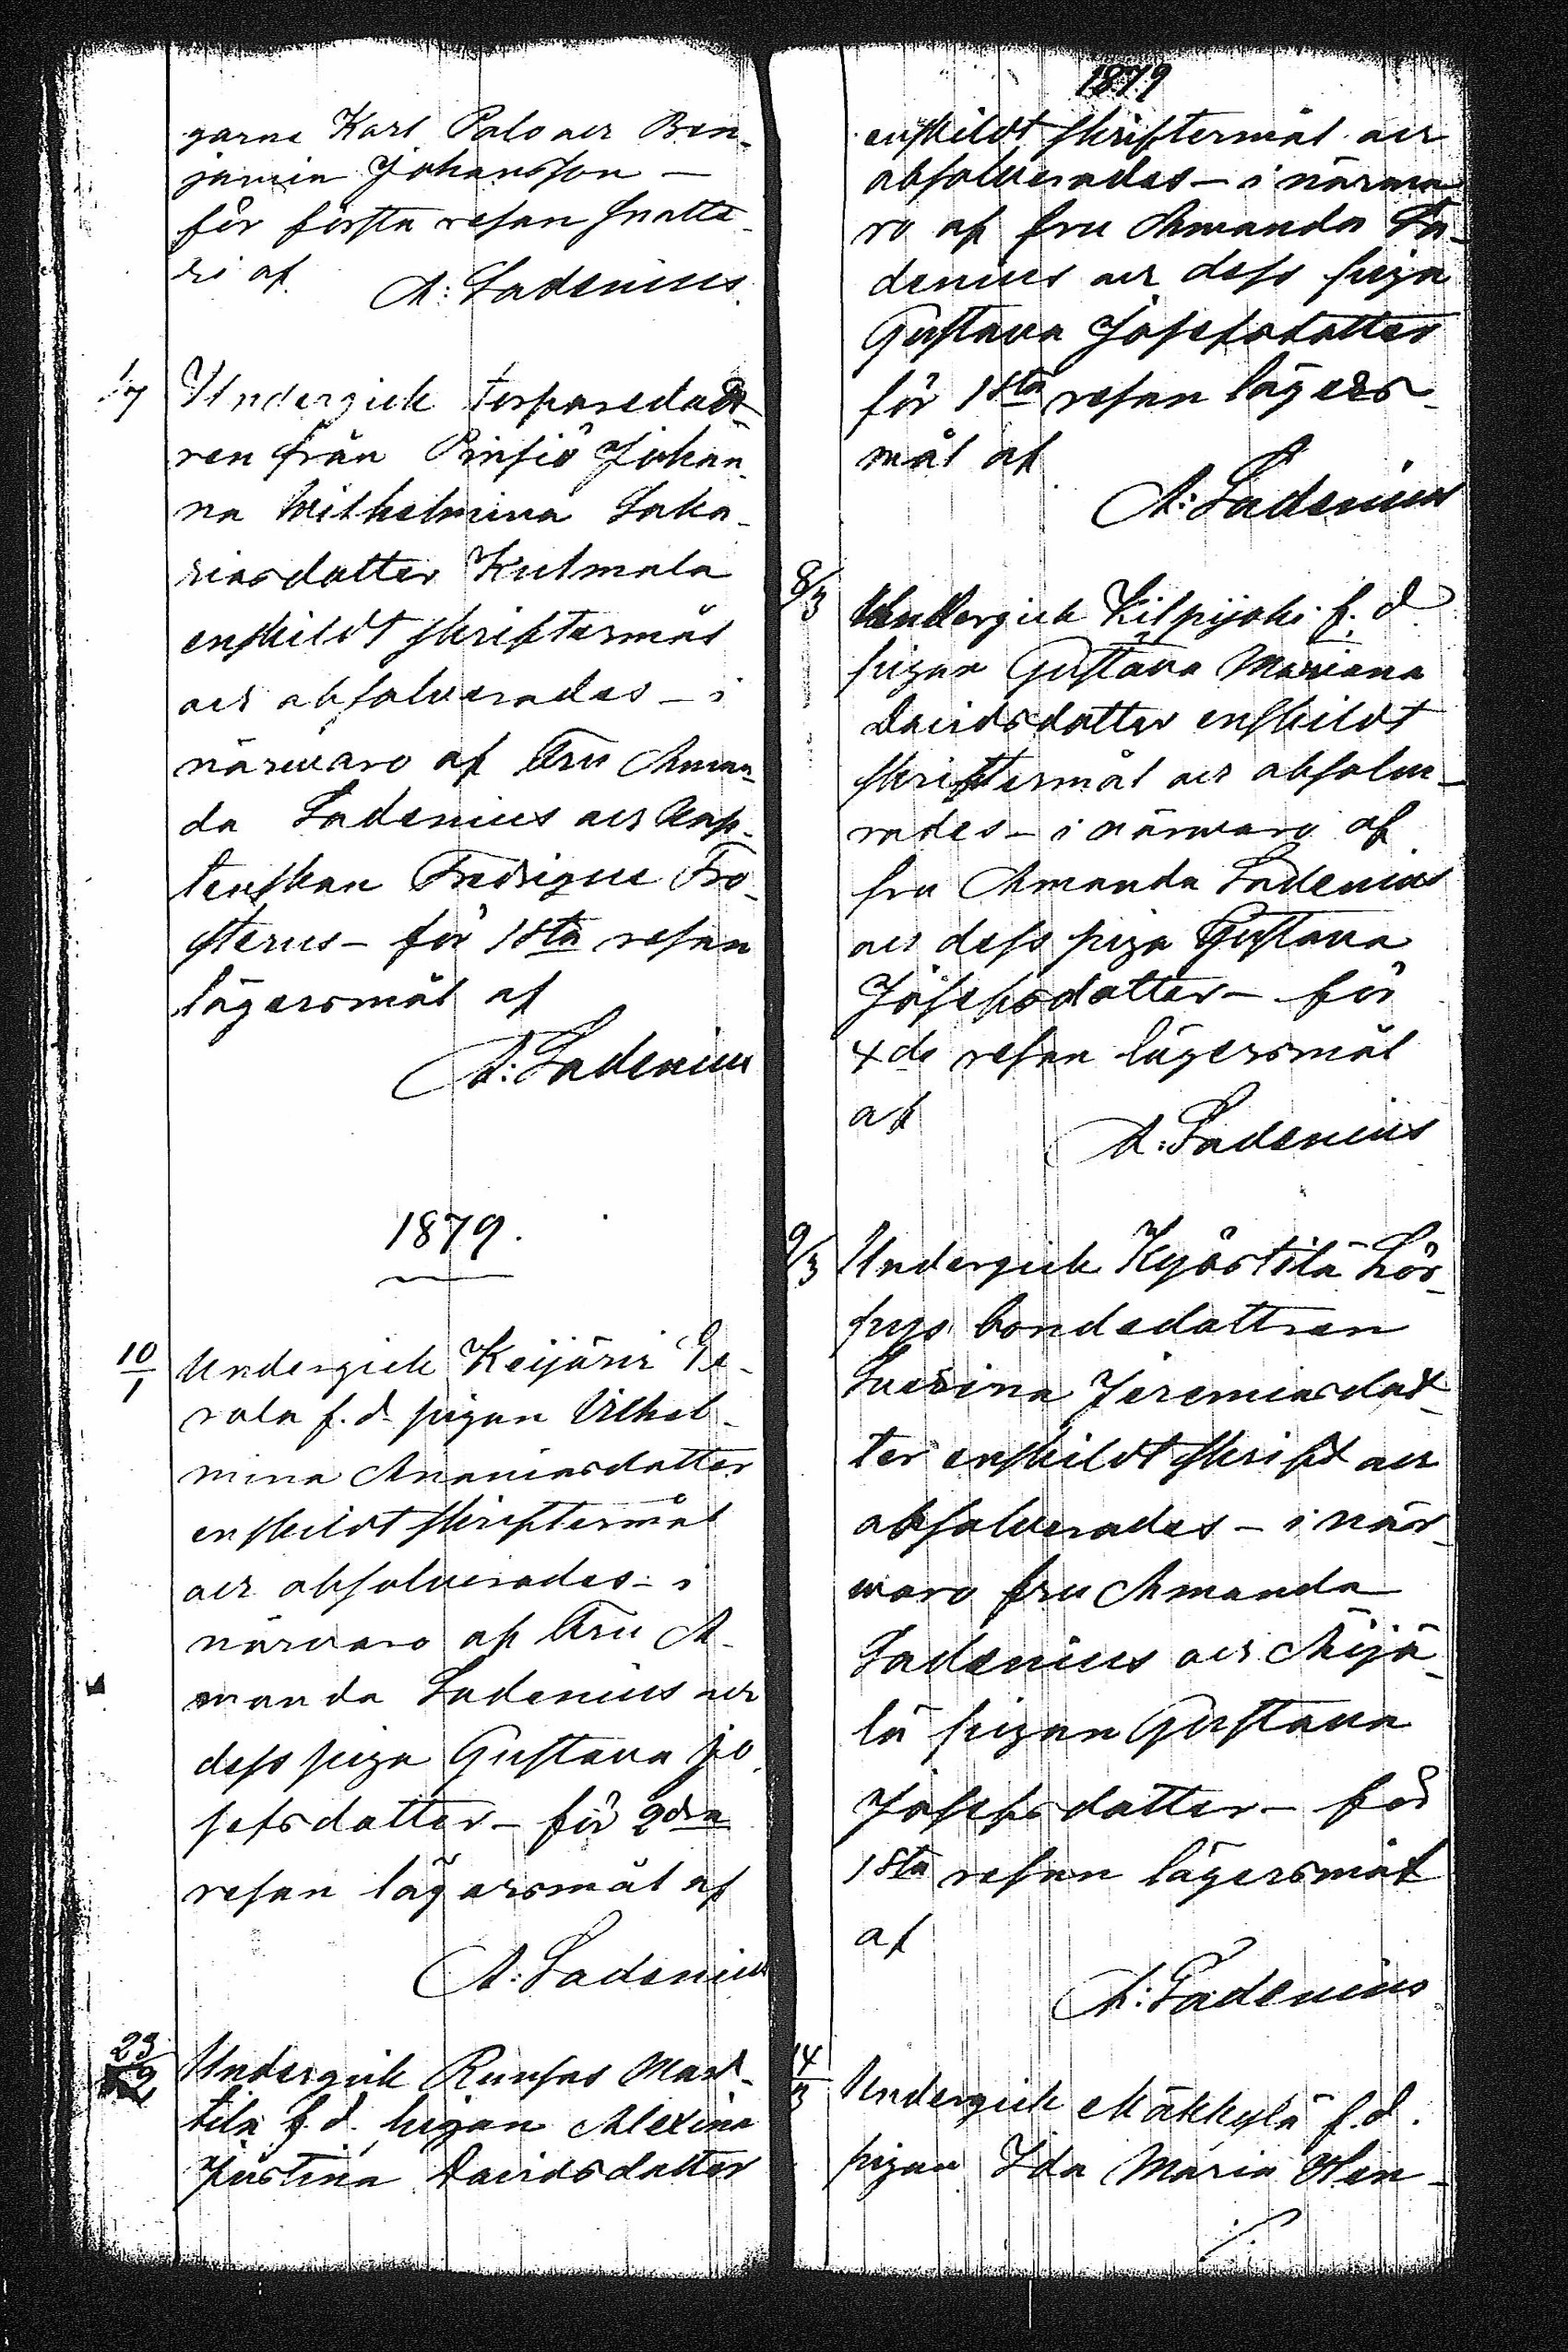 garne Karl Palo ock Ben-
jamin Johansson —
för första resan snatte-
ri af A: Ladenius.
1/7 Undergick torparedott-
ren från Pinsiö Johan-
na Wilhelmina Saka-
riasdotter Kulmala
enskildt skriftermål
ock absolverades — i
närwaro af Fru Aman-
da Ladenius ock Kap-
tenskan Fredrique Fro-
sterus — för 1sta resan
lägersmål af
A: Ladenius
1879.
10/1 Undergick Keijäris
rola f.d. pigan Vilhel-
mina Ananiasdotter
enskildt skriftermål
ock absolverades — i
närwaro af Fru A-
manda Ladenius ock
dess piga Gustava Jo-
sefsdotter — för 2dra
resan lägersmål af
A: Ladenius
23 Undergick Runsas Mart-
tila f.d. pigan Alexina
Justina Davidsdotter
1879
enskildt skriftermål ock
absolverades — i närwa-
ro af fru Amanda La-
denius ock dess piga
Gustava Josefsdotter
för 1sta resan lägers-
mål af
A: Ladenius
8/3 Undergick Kilpijoki f.d.
pigan Gustava Mariana
Davidsdotter enskildt
skriftermål ock absolve-
rades — i närwaro af
fru Amanda Ladenius
ock dess piga Gustava
Josefsdotter — för
4de resan lägersmål
af
A: Ladenius
9/3 Undergick Kyöstilä Lör-
pys bondedottren
Serina Jeremiasdot-
ter enskildt skrift ock
absolverades — i när-
waro fru Amanda
Ladenius ock Äijä-
lä pigan Gustava
Josefsdotter — för
1sta resan lägersmål
af
A: Ladenius
14/3 Undergick Mäkkylä f.d.
pigan Ida Maria Hen-
./.